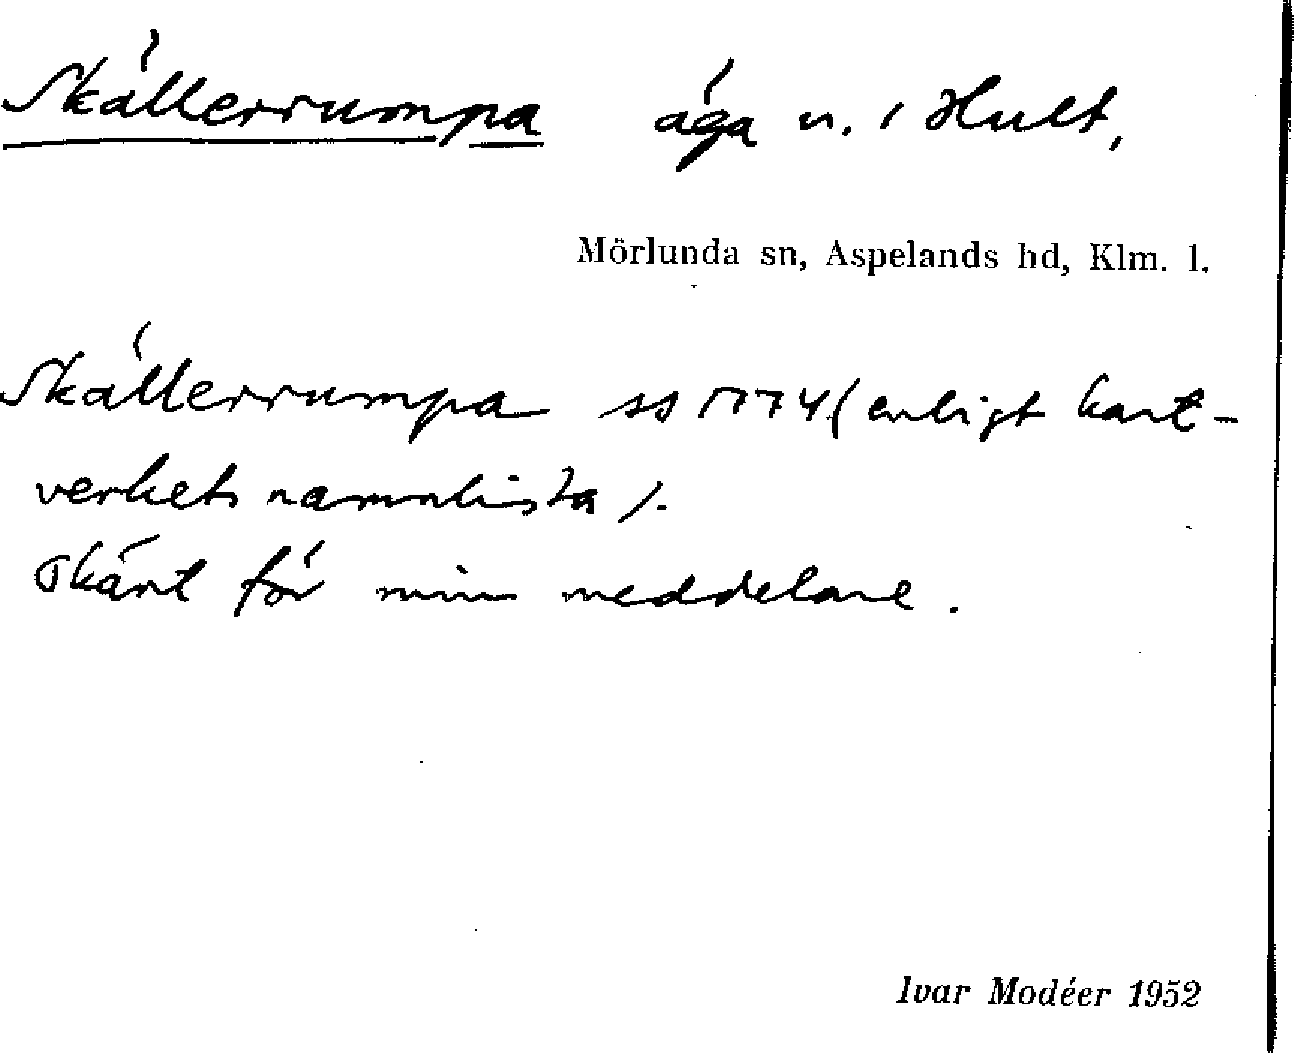 Skällerrumpa äga n. i Hult,
Mörlunda sn, Aspelands hd, Klm. l.
Skällerrumpa ss 1774 (enligt kart-
verkets namnlista).
Okänt för min meddelare.
Ivar Modéer 1952